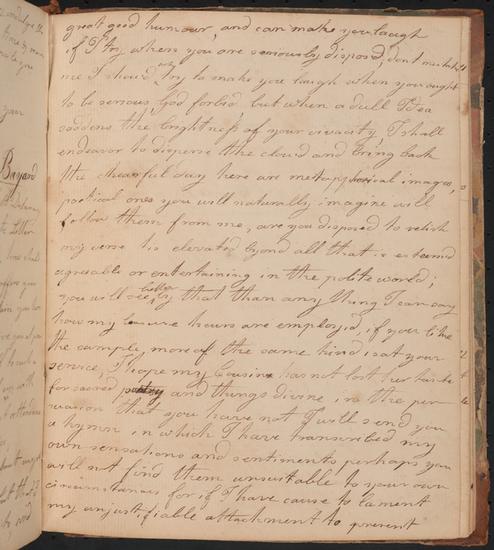 great good humour, and can make you laugh
if I try when you are seriously disposed, dont mistake
me I shoud try to make you laugh when you ought
to be serious, God forbid but when a dull Idea
saddens the brightness of your vivacity, I shall
endeavor to disperse the cloud and bring back
the chearful day here are metaphorical images,
poetical ones you will naturally imagine will
follow them from me, are you disposed to relish
my verse tis elevated beyond all that is esteemed
agreable or entertaining in the polite world;
you will see better by that than any thing I can say
how my leisure hours are employed, if you like
the sample more of the same kind is at your
service, I hope my Cousin has not lost her taste
for sacred poetry and things divine in the per
suasion that you have not I will send you
a hymn in which I have transcribed my
own sensations and sentiments perhaps you
will not find them unsuitable to your own
circumstances for if I have cause to lament
my unjustifiable attachment to present
your
Bayard
the Letter